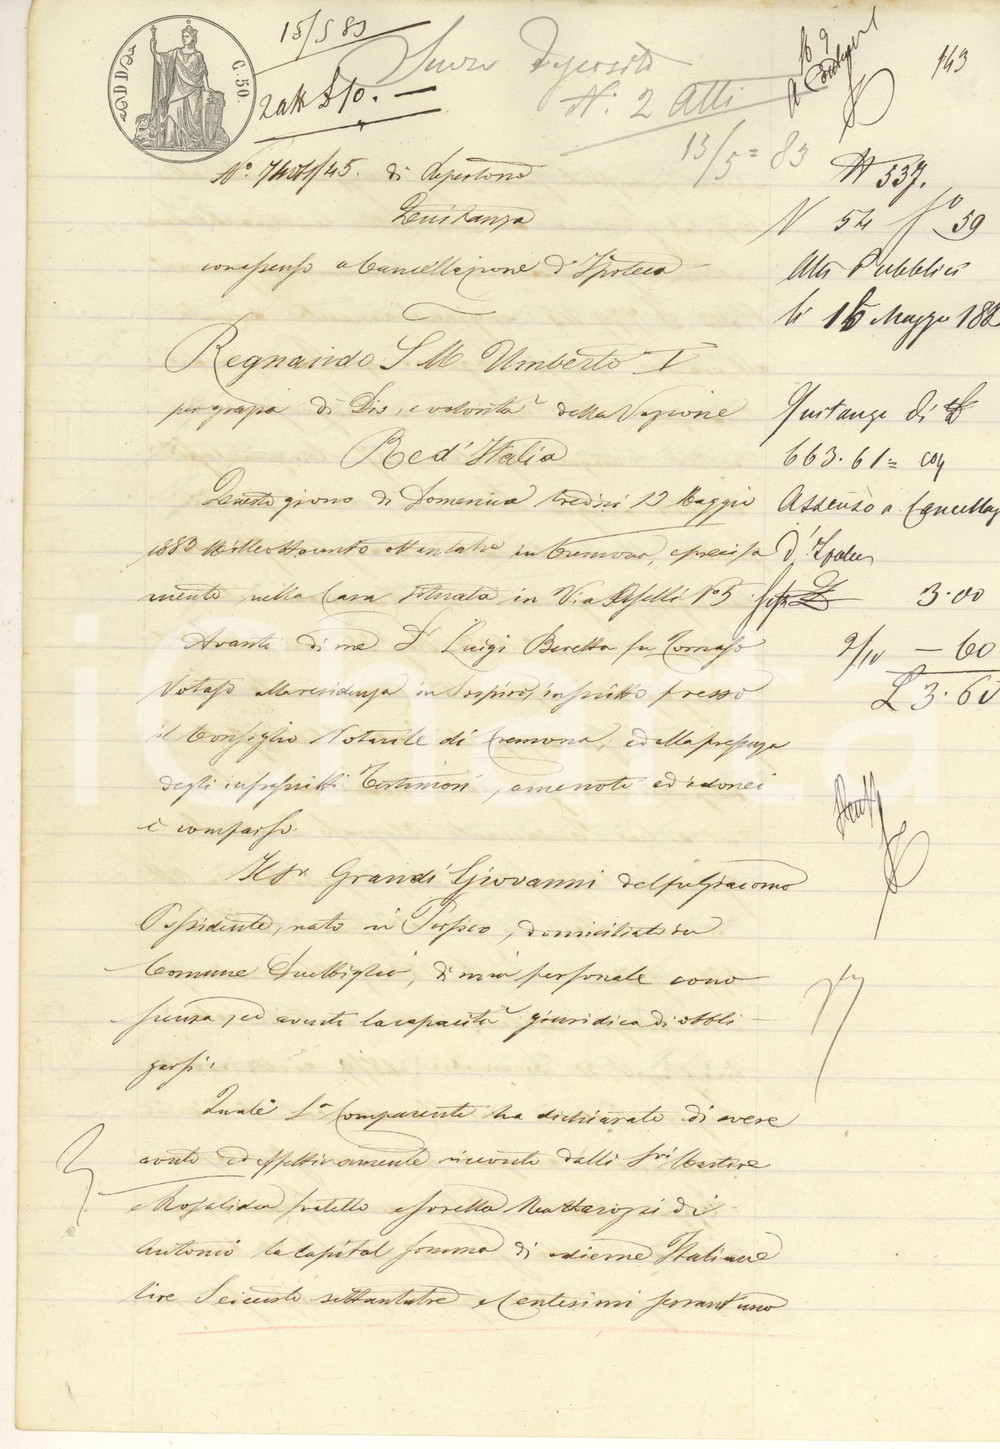 ADDI
C. 50.
15/5 83
2 atti £10. —
Deposito
N: 2 Atti
13/5 = 83
143
N. 537.
N 54 fo 59
Atti Pubblici
li 16 Maggio 188
Quitanza di
663.61 = con
Assenso a Cancellaz
d'Ipoteca
3.00
2/10 — 60
£ 3.60
di Repertorio
Quitanza
con assenso a Cancellazione d'Ipoteca
Regnando S M Umberto I
per grazia di Dio, e volontà della Nazione
Re d'Italia
Questo giorno di Domenica tredici 13 Maggio
1883 Milleottocento ottantatre in Cremona, e precisa
mente nella Casa situata in Via Aselli No 5
Avanti di me Dr Luigi Beretta fu Tomaso
Notajo alla residenza in Sospiro, inscritto presso
il Consiglio Notarile di Cremona, ed alla presenza
degli infrascritti Testimoni, ame noti ed idonei
è comparso.
Il Sr Grandi Giovanni del fu Giacomo
Possidente, nato in Persico, domiciliato in
Comune Duemiglia, di mia personale cono
scenza, ed avente la capacità giuridica di obbli
garsi.
Quale Sr Comparente ha dichiarato di avere
avuto ed effettivamente ricevuto dalli Sri
e Rosalinda fratello e sorella di
Antonio la Capital somma di odierne Italiane
lire Seicento settantatre e Centesimi sessantuno